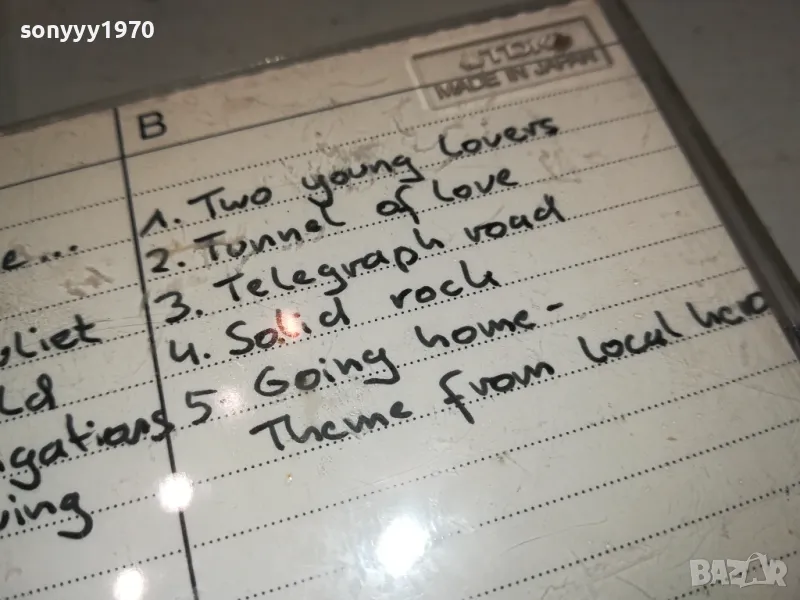 sonyyy1970
TDK
MADE IN JAPAN
B
1. Two young lovers
2. Tunnel of love
3. Telegraph road
4. Solid rock
5 Going home -
Theme from local hero
e...
liet
ld
igations
ving
BAZAR